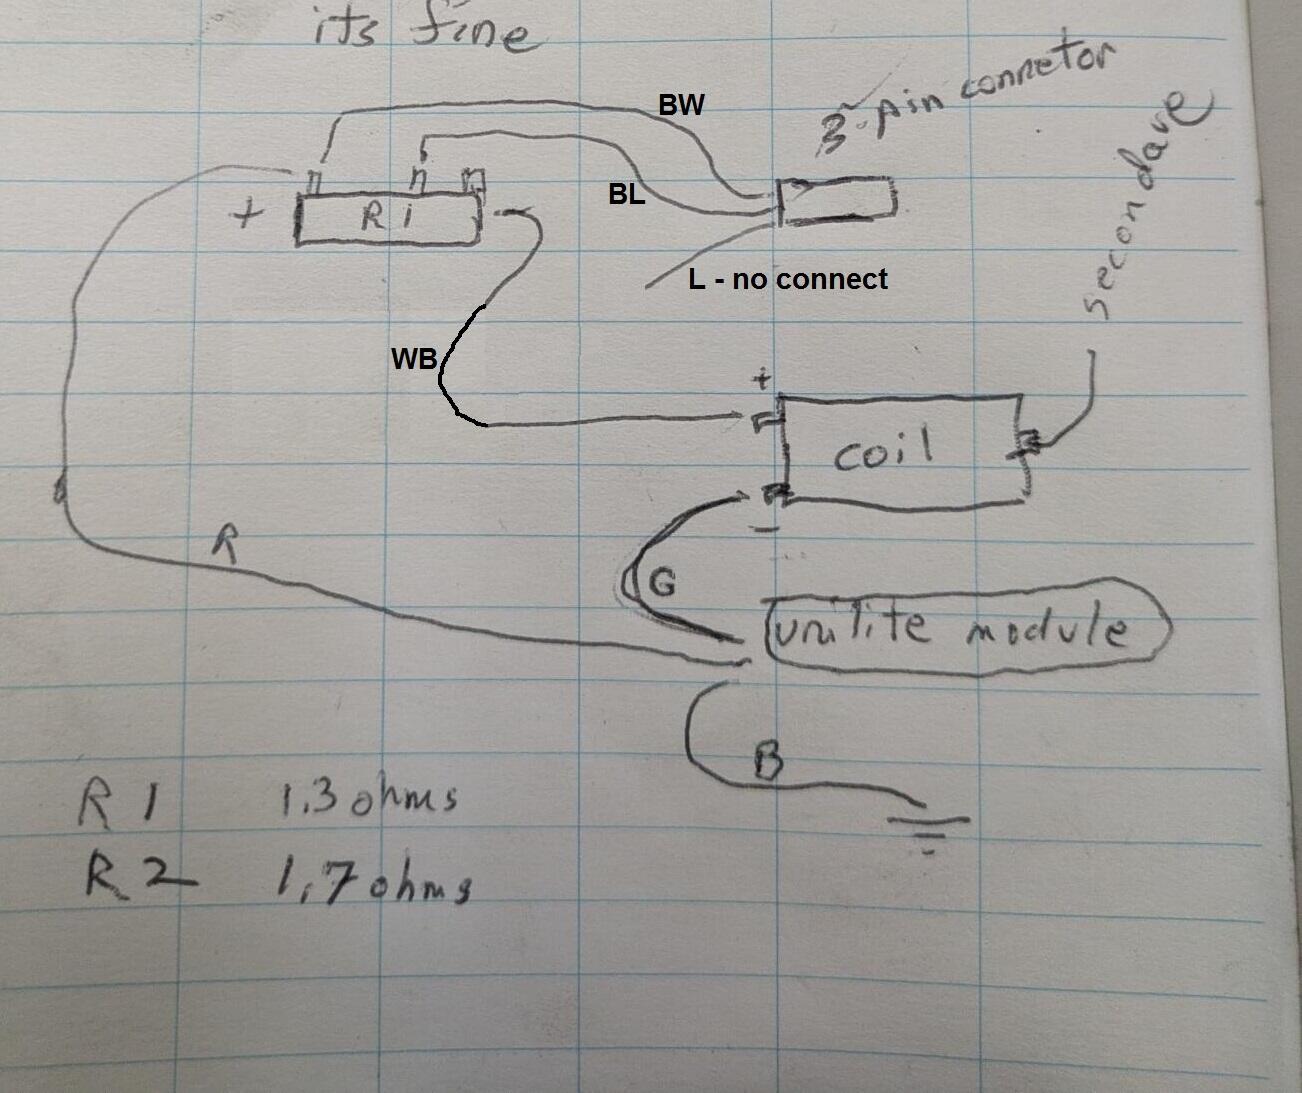 its fine
3-pin connetor
BW
secondare
BL
+ R 1
L - no connect
WB
+
coil
R
-
G
unilite module
B
R 1 1.3 ohms
R 2 1.7 ohms